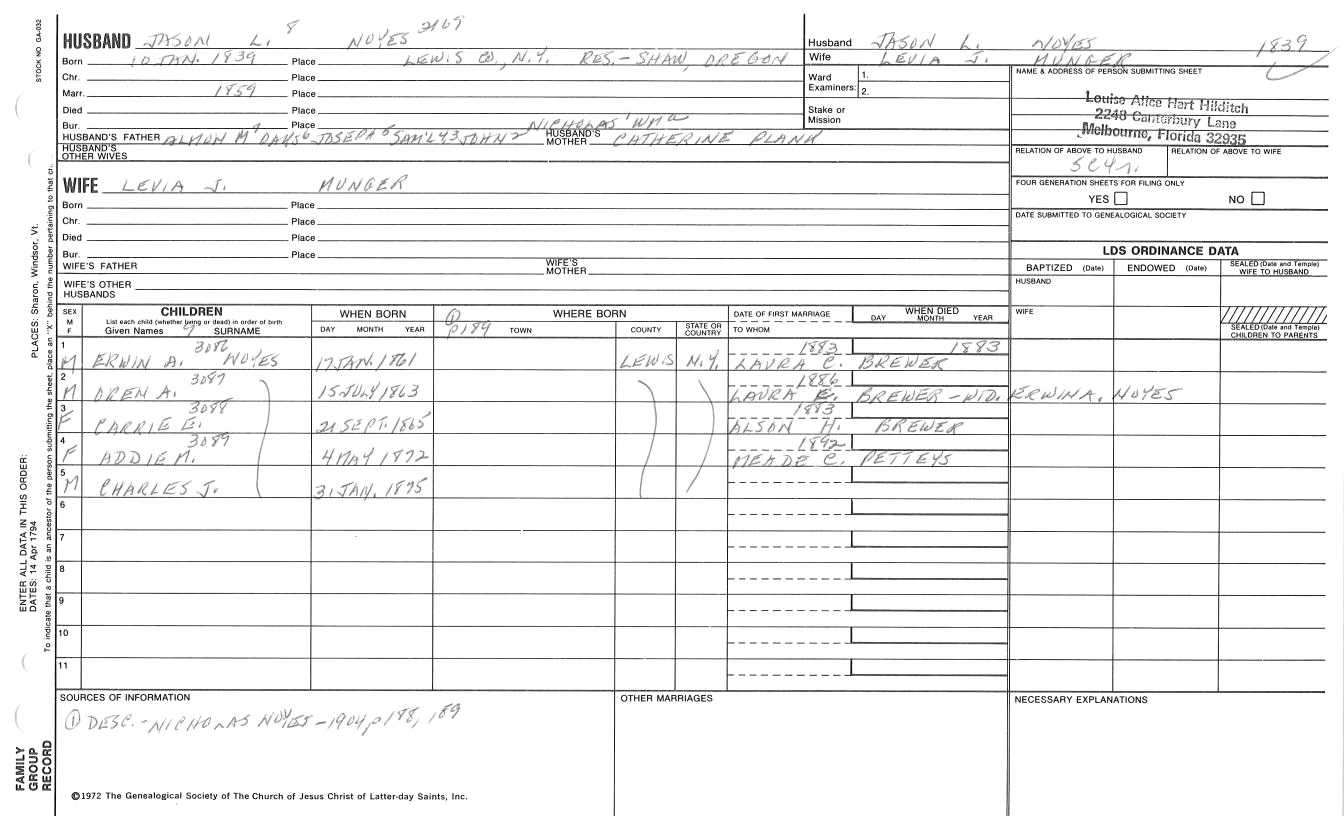 STOCK NO GA-032
HUSBAND JASON L. 8 NOYES 2169
Born 10 JAN. 1839 Place LEWIS CO., N.Y. RES. - SHAW, OREGON
Chr. Place
Marr. 1859 Place
Died Place
Bur. Place
HUSBAND'S FATHER ALMON M 7 DAVIS 6 JOSEPH 5 SAM'L 4 3 JOHN 2 NICHOLAS 1 WM a HUSBAND'S MOTHER CATHERINE PLANK
HUSBAND'S OTHER WIVES
Husband JASON L. NOYES 1839
Wife LEVIA J. MUNGER
Ward Examiners: 1. 2.
Stake or Mission
NAME & ADDRESS OF PERSON SUBMITTING SHEET
Louise Alice Hart Hilditch
2248 Canterbury Lane
Melbourne, Florida 32935
RELATION OF ABOVE TO HUSBAND RELATION OF ABOVE TO WIFE
5C4r.
FOUR GENERATION SHEETS FOR FILING ONLY
YES NO
DATE SUBMITTED TO GENEALOGICAL SOCIETY
WIFE LEVIA J. MUNGER
Born Place
Chr. Place
Died Place
Bur. Place
WIFE'S FATHER WIFE'S MOTHER
WIFE'S OTHER HUSBANDS
LDS ORDINANCE DATA
BAPTIZED (Date) ENDOWED (Date) SEALED (Date and Temple) WIFE TO HUSBAND
HUSBAND
WIFE
SEALED (Date and Temple) CHILDREN TO PARENTS
SEX M F
CHILDREN
List each child (whether living or dead) in order of birth
Given Names 9 SURNAME
WHEN BORN
DAY MONTH YEAR
① p189
WHERE BORN
TOWN COUNTY STATE OR COUNTRY
DATE OF FIRST MARRIAGE
TO WHOM
WHEN DIED
DAY MONTH YEAR
1 M ERWIN A. 3086 NOYES 17 JAN. 1861 LEWIS N.Y. 1883 LAURA C. BREWER 1883
2 M OREN A. 3087 15 JULY 1863 1886 LAURA E. BREWER - WID. ERWIN A. NOYES
3 F CARRIE E. 3088 21 SEPT. 1865 1883 ALSON H. BREWER
4 F ADDIE M. 3089 4 MAY 1872 1892 MEADE C. PETTEYS
5 M CHARLES J. 31 JAN. 1875
6
7
8
9
10
11
SOURCES OF INFORMATION
① DESC. - NICHOLAS NOYES - 1904, p 188, 189
OTHER MARRIAGES
NECESSARY EXPLANATIONS
©1972 The Genealogical Society of The Church of Jesus Christ of Latter-day Saints, Inc.
FAMILY GROUP RECORD
ENTER ALL DATA IN THIS ORDER:
DATES: 14 Apr 1794
PLACES: Sharon, Windsor, Vt.
To indicate that a child is an ancestor of the person submitting the sheet, place an "X" behind the number pertaining to that child.